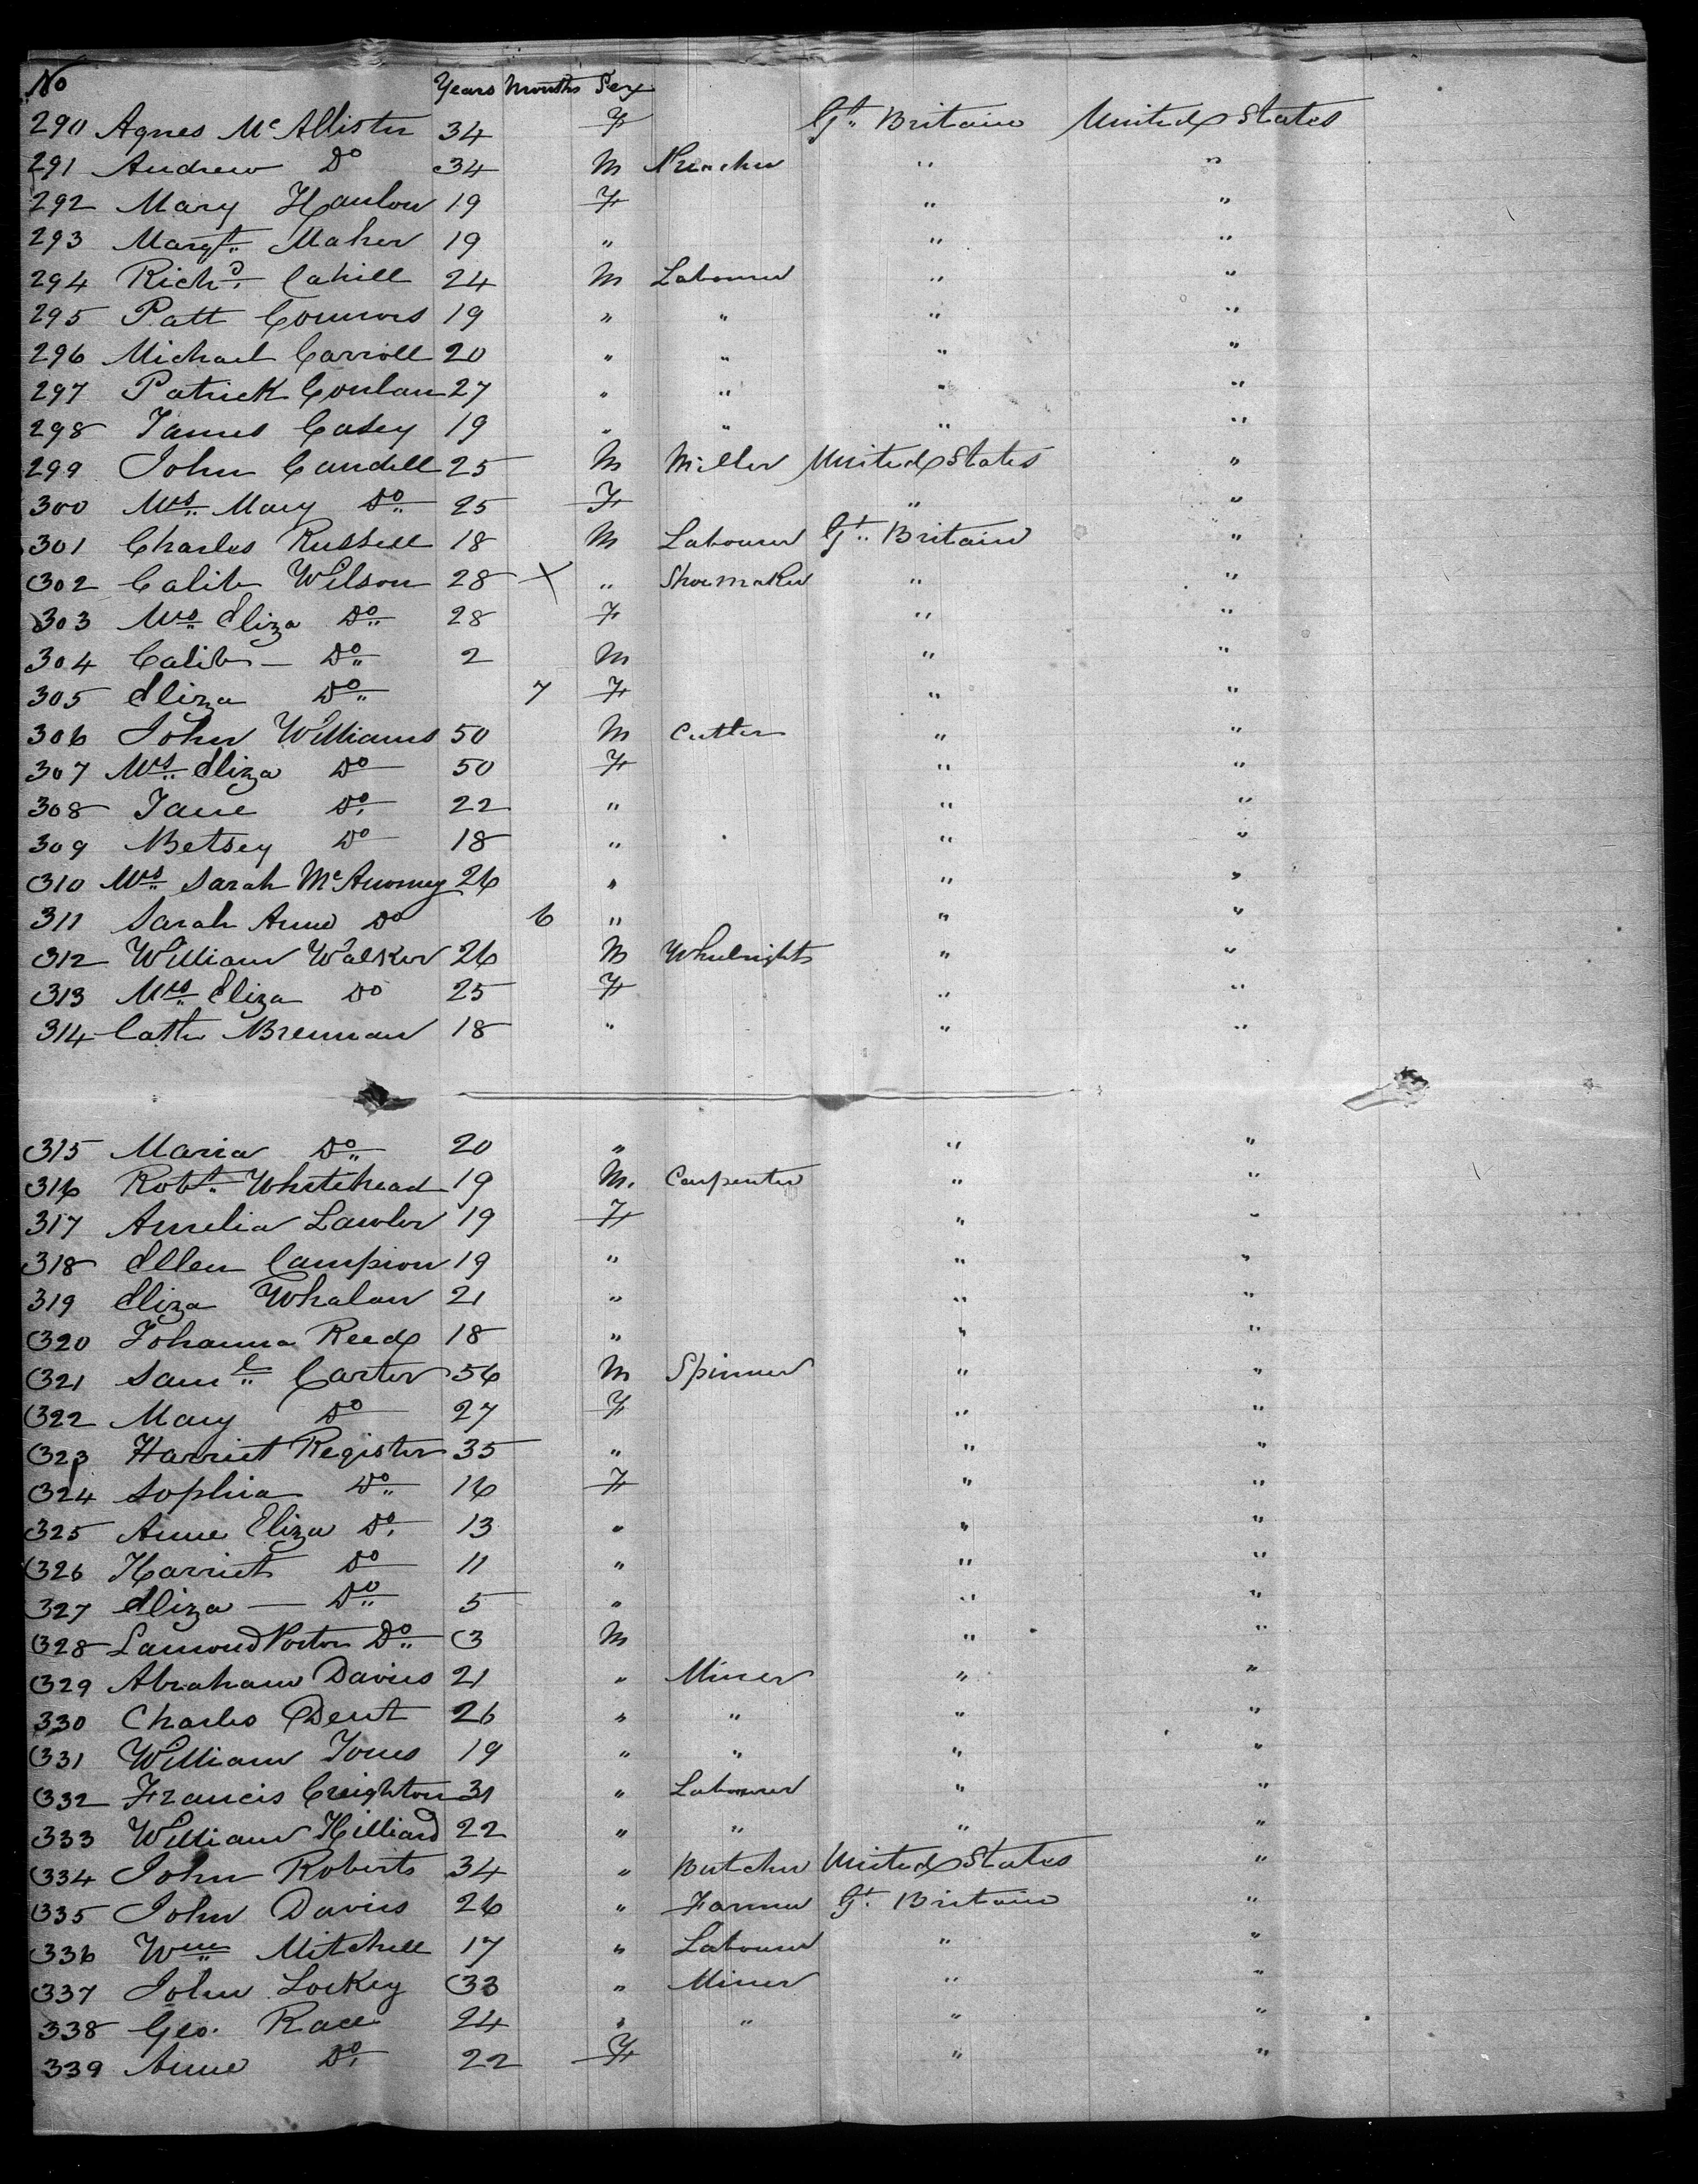 No Years Months Sex
290 Agnes McAllister 34 F Gt. Britain United States
291 Andrew Do 34 M Preacher " "
292 Mary Hanlon 19 F " "
293 Margt. Maher 19 " " "
294 Richd. Cahill 24 M Labourer " "
295 Patt Connors 19 " " " "
296 Michael Carroll 20 " " " "
297 Patrick Conlan 27 " " " "
298 James Casey 19 " " " "
299 John Candell 25 M Miller United States "
300 Mrs. Mary Do 25 F " "
301 Charles Russell 18 M Labourer Gt. Britain "
302 Calib Wilson 28 X " Shoemaker " "
303 Mrs Eliza Do 28 F " "
304 Calib — Do 2 M " "
305 Eliza Do 7 F " "
306 John Williams 50 M Cutler " "
307 Mrs Eliza Do 50 F " "
308 Jane Do. 22 " " "
309 Betsey Do 18 " " "
310 Mrs Sarah 26 " " "
311 Sarah Anne Do 6 " " "
312 William Walker 26 M Wheelright " "
313 Mrs Eliza Do 25 F " "
314 Cath Brennan 18 " " "
315 Maria Do 20 " " "
316 Robt. Whitehead 19 M. Carpenter " "
317 Amelia Lawler 19 F " "
318 Ellen Campion 19 " " "
319 Eliza Whalan 21 " " "
320 Johanna Reed 18 " " "
321 Saml. Carter 56 M Spinner " "
322 Mary Do 27 F " "
323 Harriet Register 35 " " "
324 Sophia Do 16 F " "
325 Anne Eliza Do. 13 " " "
326 Harriet Do 11 " " "
327 Eliza — Do 5 " " "
328 Lamond Porton Do 3 M " "
329 Abraham Davies 21 " Miner " "
330 Charles Dent 26 " " " "
331 William Jones 19 " " " "
332 Francis Creighton 31 " Labourer " "
333 William Hilliard 22 " " " "
334 John Roberts 34 " Butcher United States "
335 John Davies 26 " Farmer Gt. Britain "
336 Wm Mitchell 17 " Labourer " "
337 John Lockey 33 " Miner " "
338 Geo. Race 24 " " " "
339 Anne Do. 22 F " "